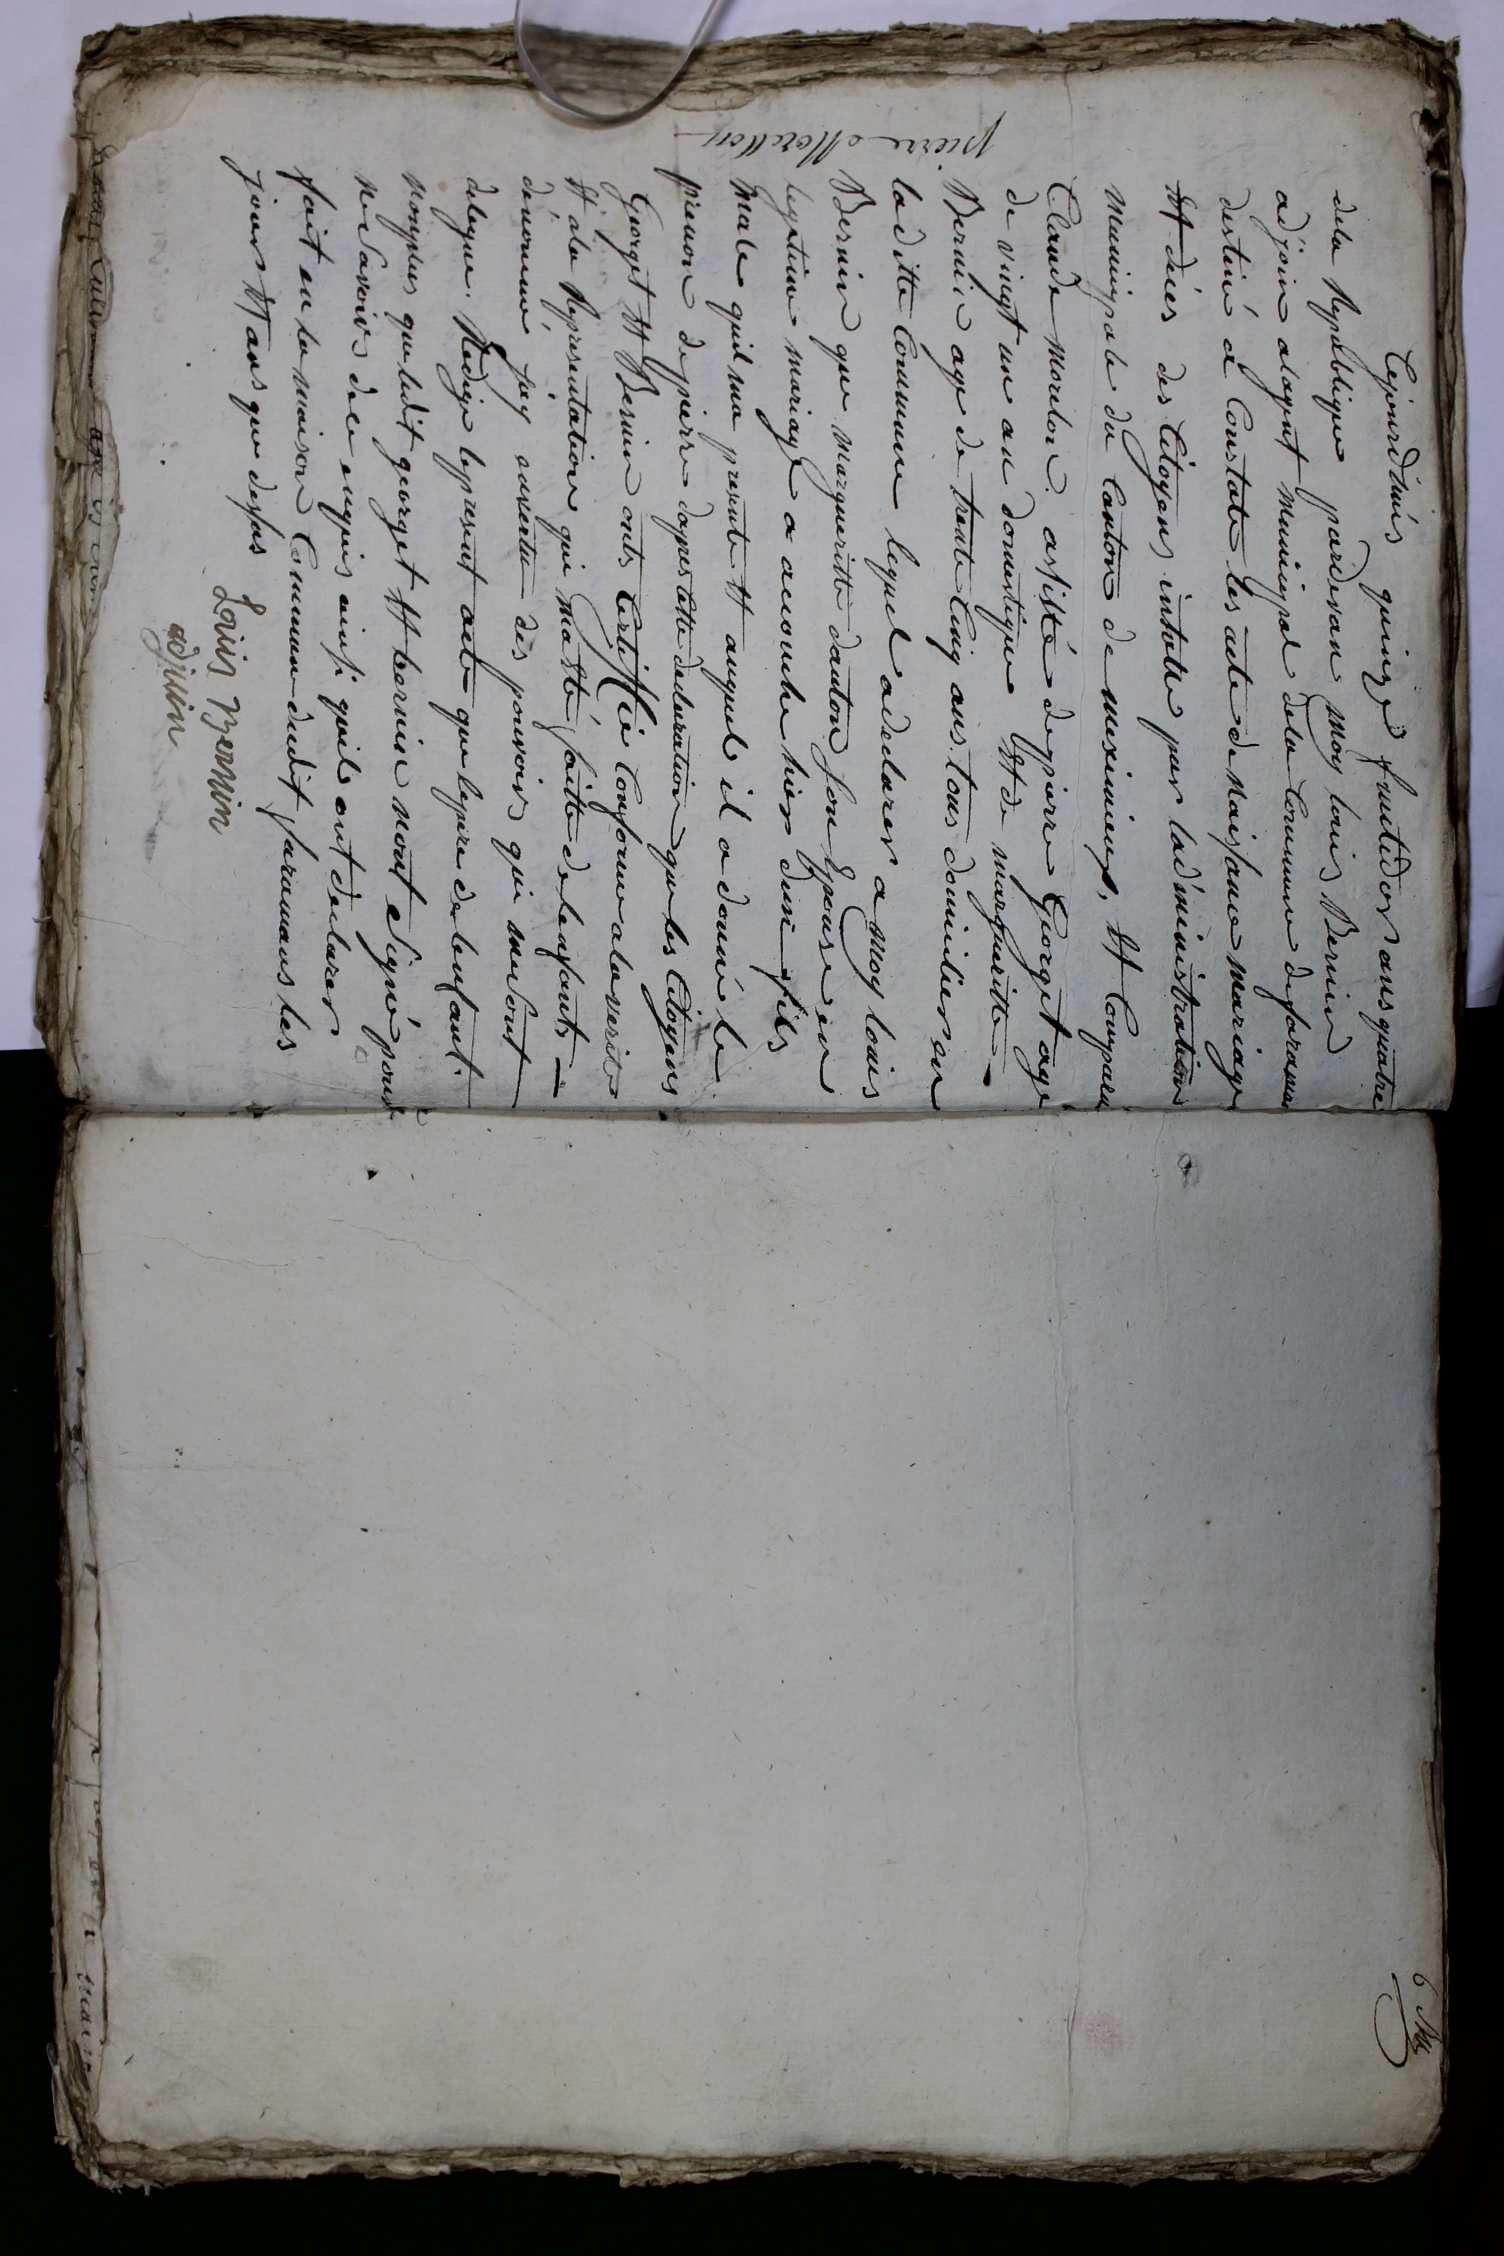 pierre Morellon
Cejourdhuis quinze fructidor ans quatre
dela Republique pardevan moy louis Bernin
adjoin alagent municipal dela Commune de faramans
destiné a Constate les acte de naissance mariage
et déces des Citoyens intalle par ladministration
municipale du Canton de meximieux, et Comparu
Claude morelon assisté de pierre Georget age
de vingt un an domestique et de margueritte
Bernin age de trente cinq ans tous domicilier en
laditte Commune lequel a declarer a moy louis
Bernin que marguerite danton son Epouse en
legitime mariage a accouche hier dun fils
male quil ma presente et auquel il a donné le
prenon de pierre dapres cette declaration que les Citoyens
Georget et Bernin onts Certiffié Conforme a la verite
et ala Representation qui ma été faitte de lenfants
denomme jay envertu des pouvoirs qui me sont
delegue Redige lepresent acte que lepere de lenfant.
nonplus que ledit georget et bernin nont signé pour
ne savoirs de ce enquis ainsi quil ont declarer
fait en la maison Commune dudit faramans les
jours et ans que dessus
Loüis Bernin
adjoin
6